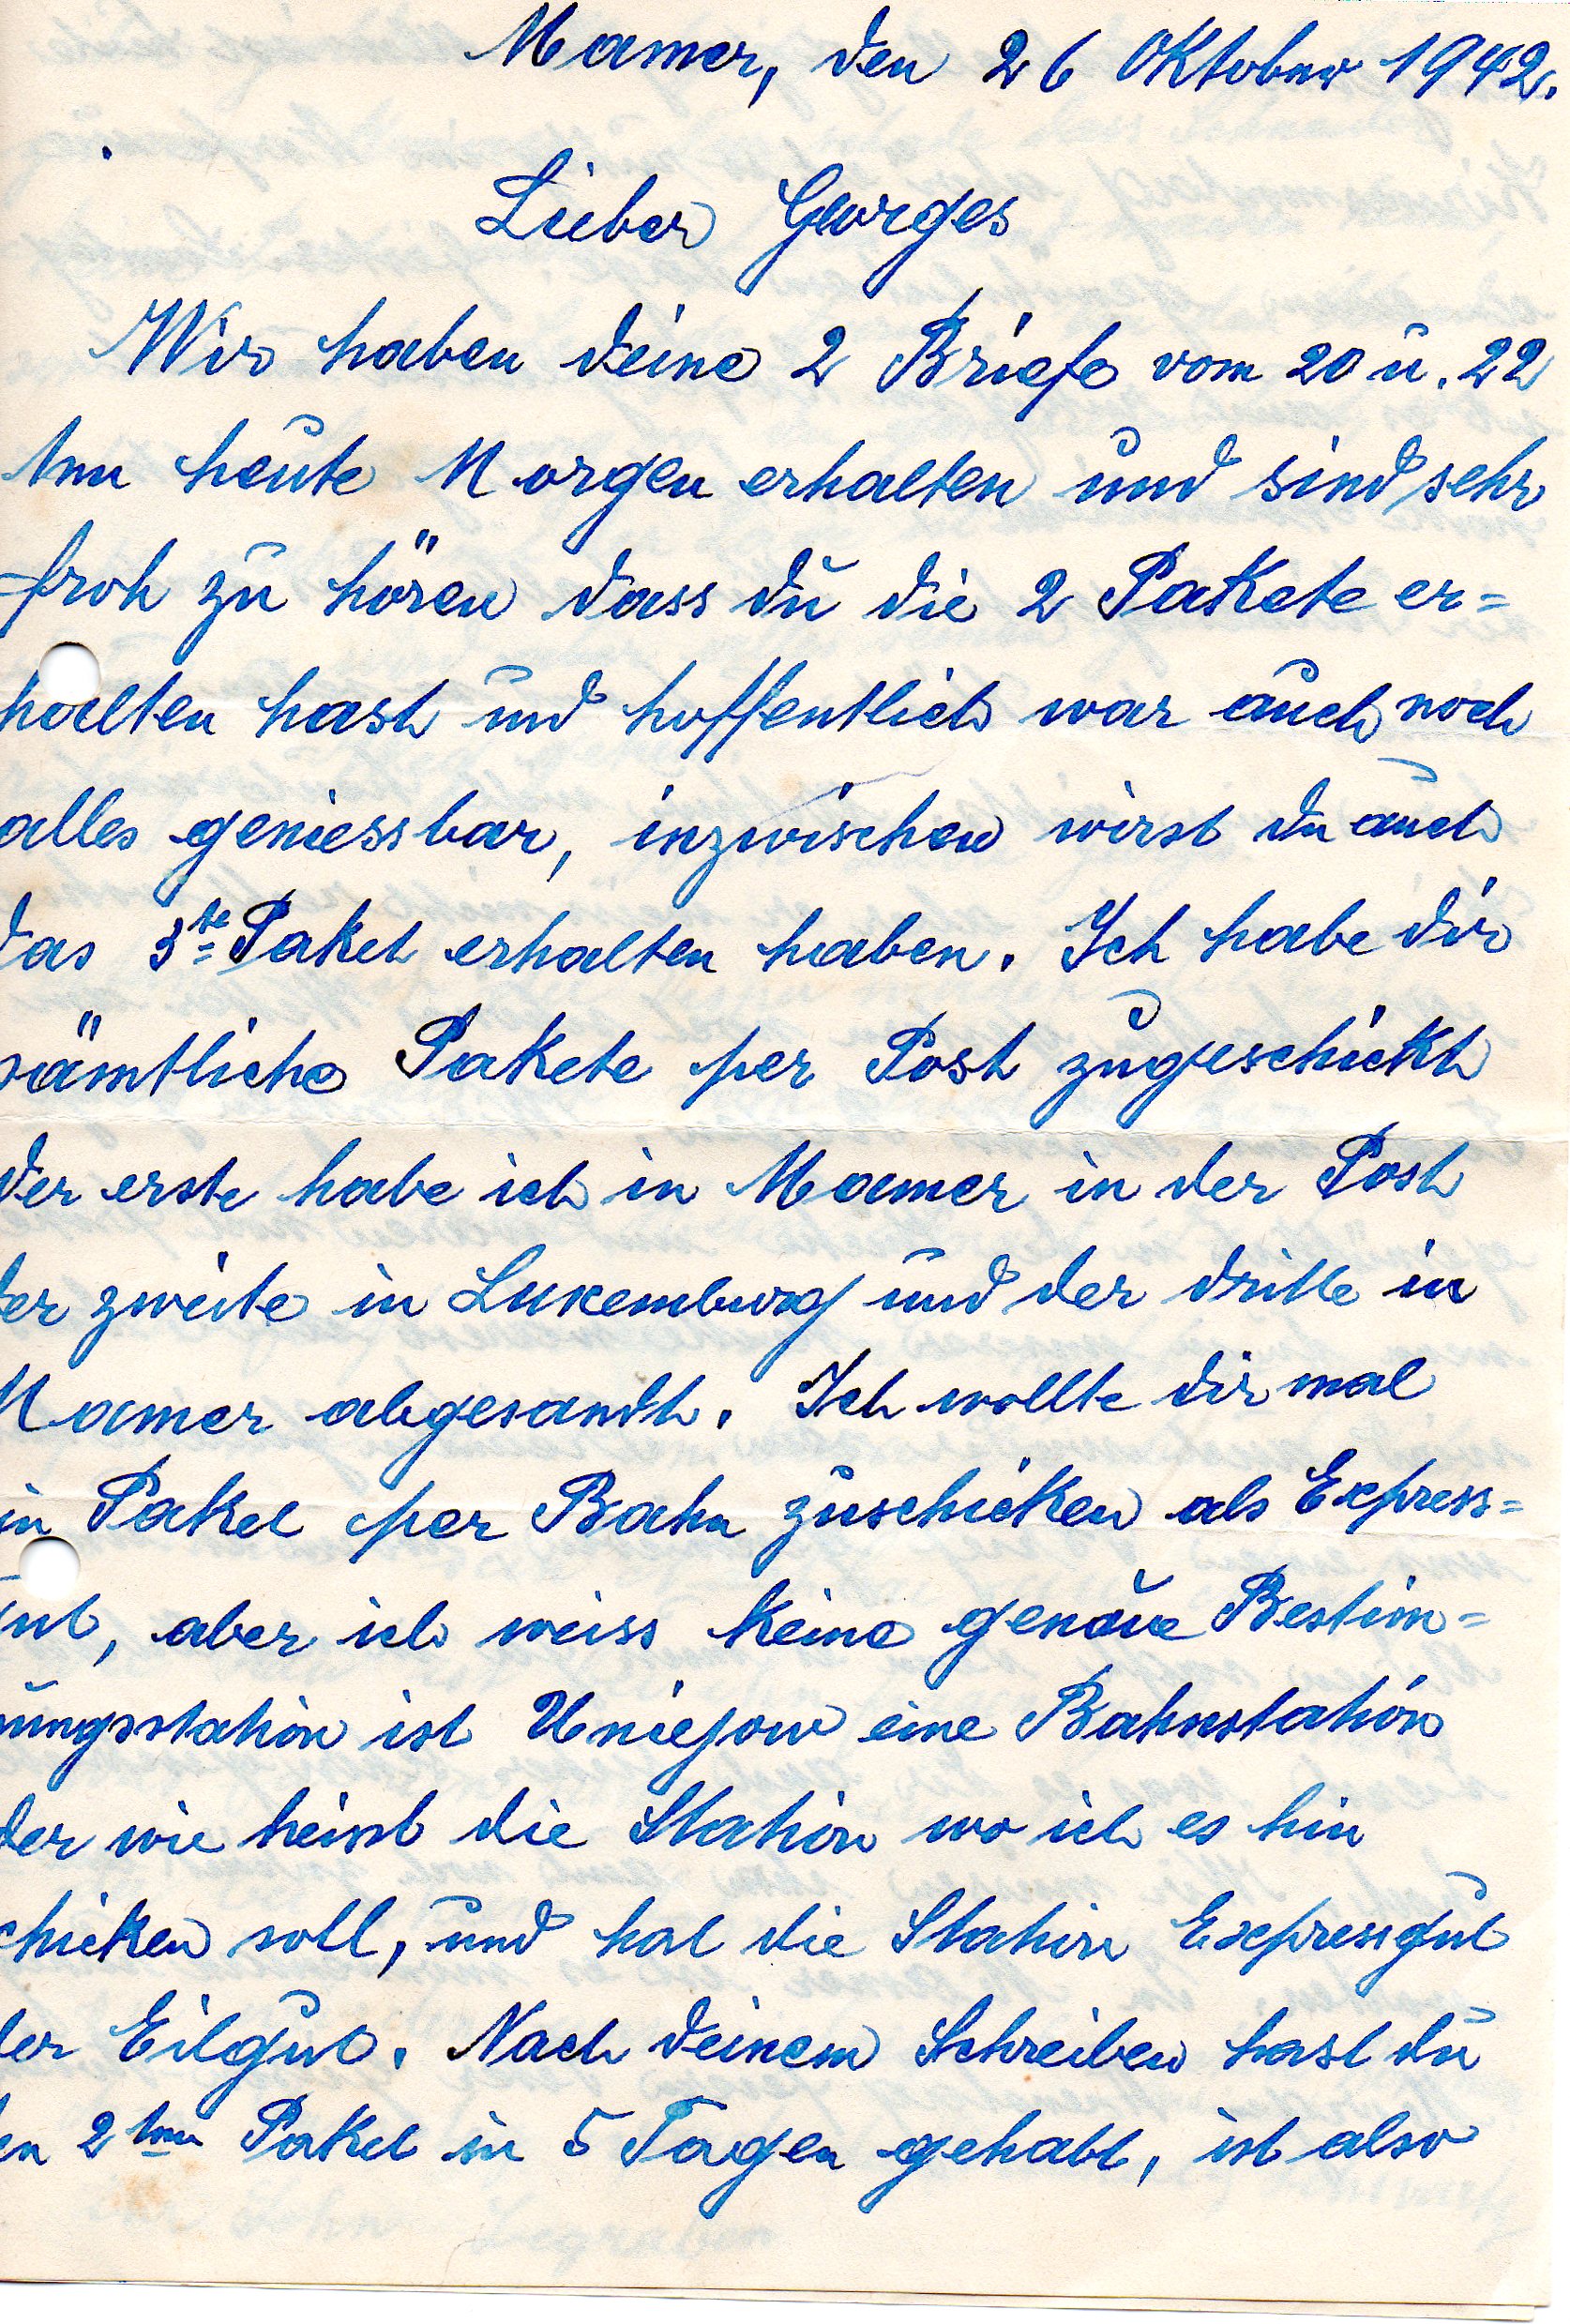 Mamer, den 26 Oktober 1942.
Lieber Georges
Wir haben deine 2 Briefe vom 20 u. 22
ten heute Morgen erhalten und sind sehr
froh zu hören dass du die 2 Pakete er=
halten hast und hoffentlich war auch noch
alles geniessbar, inzwischen wirst du auch
das 3te Paket erhalten haben. Ich habe dir
sämtliche Pakete per Post zugeschickt
der erste habe ich in Mamer in der Post
der zweite in Luxemburg und der dritte in
Mamer abgesandt. Ich wollte dir mal
in Paket per Bahn zuschicken als Express=
gut, aber ich weiss keine genaue Bestim=
ungsstation ist Uniejow eine Bahnstation
der wie heisst die Station wo ich es hin
chicken soll, und hat die Station Expressgut
der Eilgut. Nach deinem Schreiben hast du
en 2ten Paket in 5 Tagen gehabt, ist also